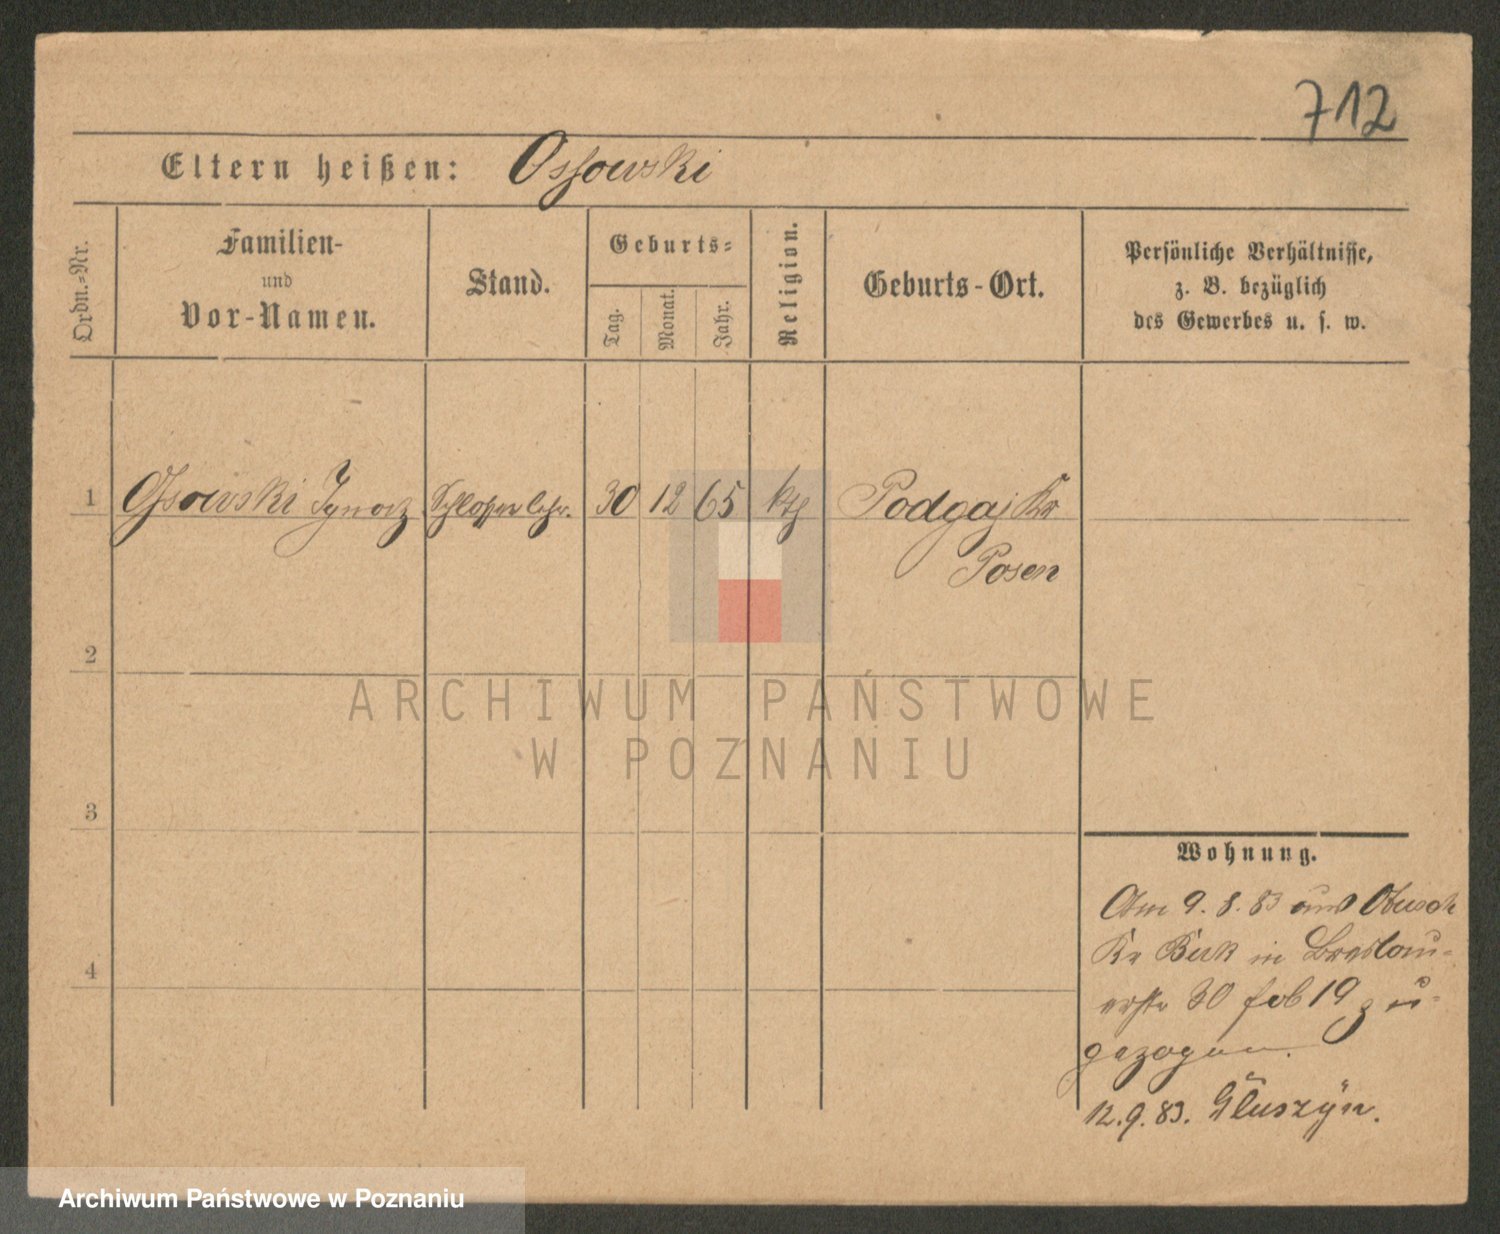 712
Eltern heißen: Ossowski
Ordn.-Nr.
Familien-
und
Vor-Namen.
Stand.
Geburts-
Tag.
Monat.
Jahr.
Religion.
Geburts-Ort.
Persönliche Verhältnisse,
z. B. bezüglich
des Gewerbes u. s. w.
1 Ossowski Ignatz Schlosserlehr. 30 12 65 kth Podgaj Kr
Posen
2
ARCHIWUM PAŃSTWOWE
W POZNANIU
3
4
Wohnung.
Am 9. 8. 83 aus
Kr Buk in Breslauer-
30 19 zu-
gezogen.
12. 9. 83. Głuszyn.
Archiwum Państwowe w Poznaniu